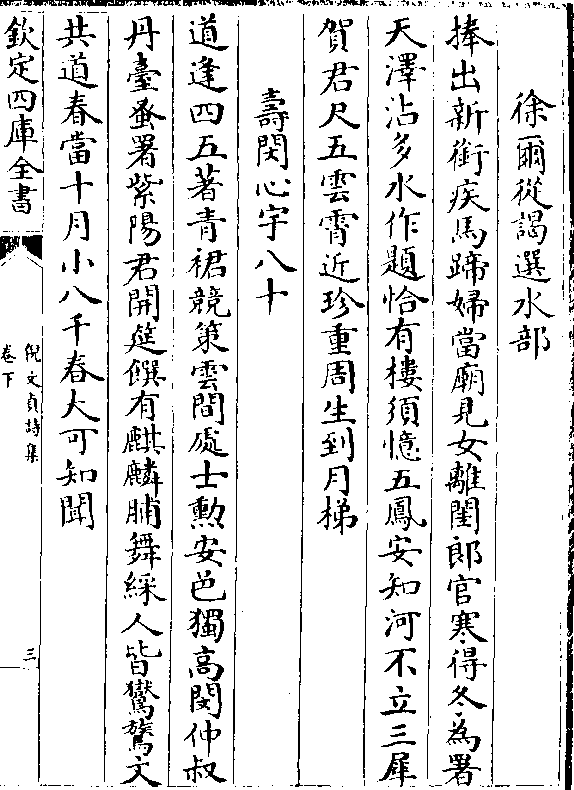 徐爾從謁選水部
捧出新銜疾馬蹄婦當廟見女離閨郎官寒得冬為署
天澤沾多水作題恰有樓須憶五鳳安知河不立三犀
賀君尺五雲霄近珍重周生到月梯
壽閔心宇八十
道逢四五著青裙競策雲間處士勲安邑獨高閔仲叔
丹臺蚤署紫陽君開筵饌有麒麟脯舞綵人皆鸑鷟文
共道春當十月小八千春大可知聞
欽定四庫全書
倪文貞詩集
卷下
三